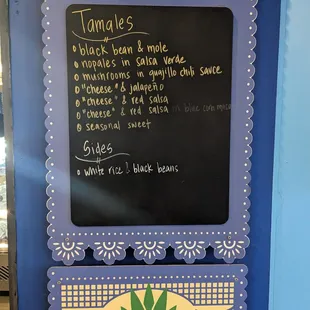 Tamales
black bean & mole
nopales in salsa verde
mushrooms in guajillo chili sauce
"cheese" & jalapeño
"cheese" & red salsa
"cheese" & red salsa in blue corn masa
seasonal sweet
Sides
white rice & black beans